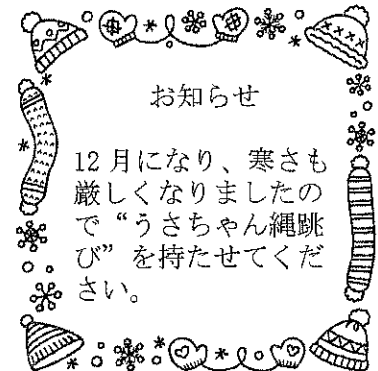 お知らせ
12月になり、寒さも
厳しくなりましたの
で“うさちゃん縄跳
び”を持たせてくだ
さい。